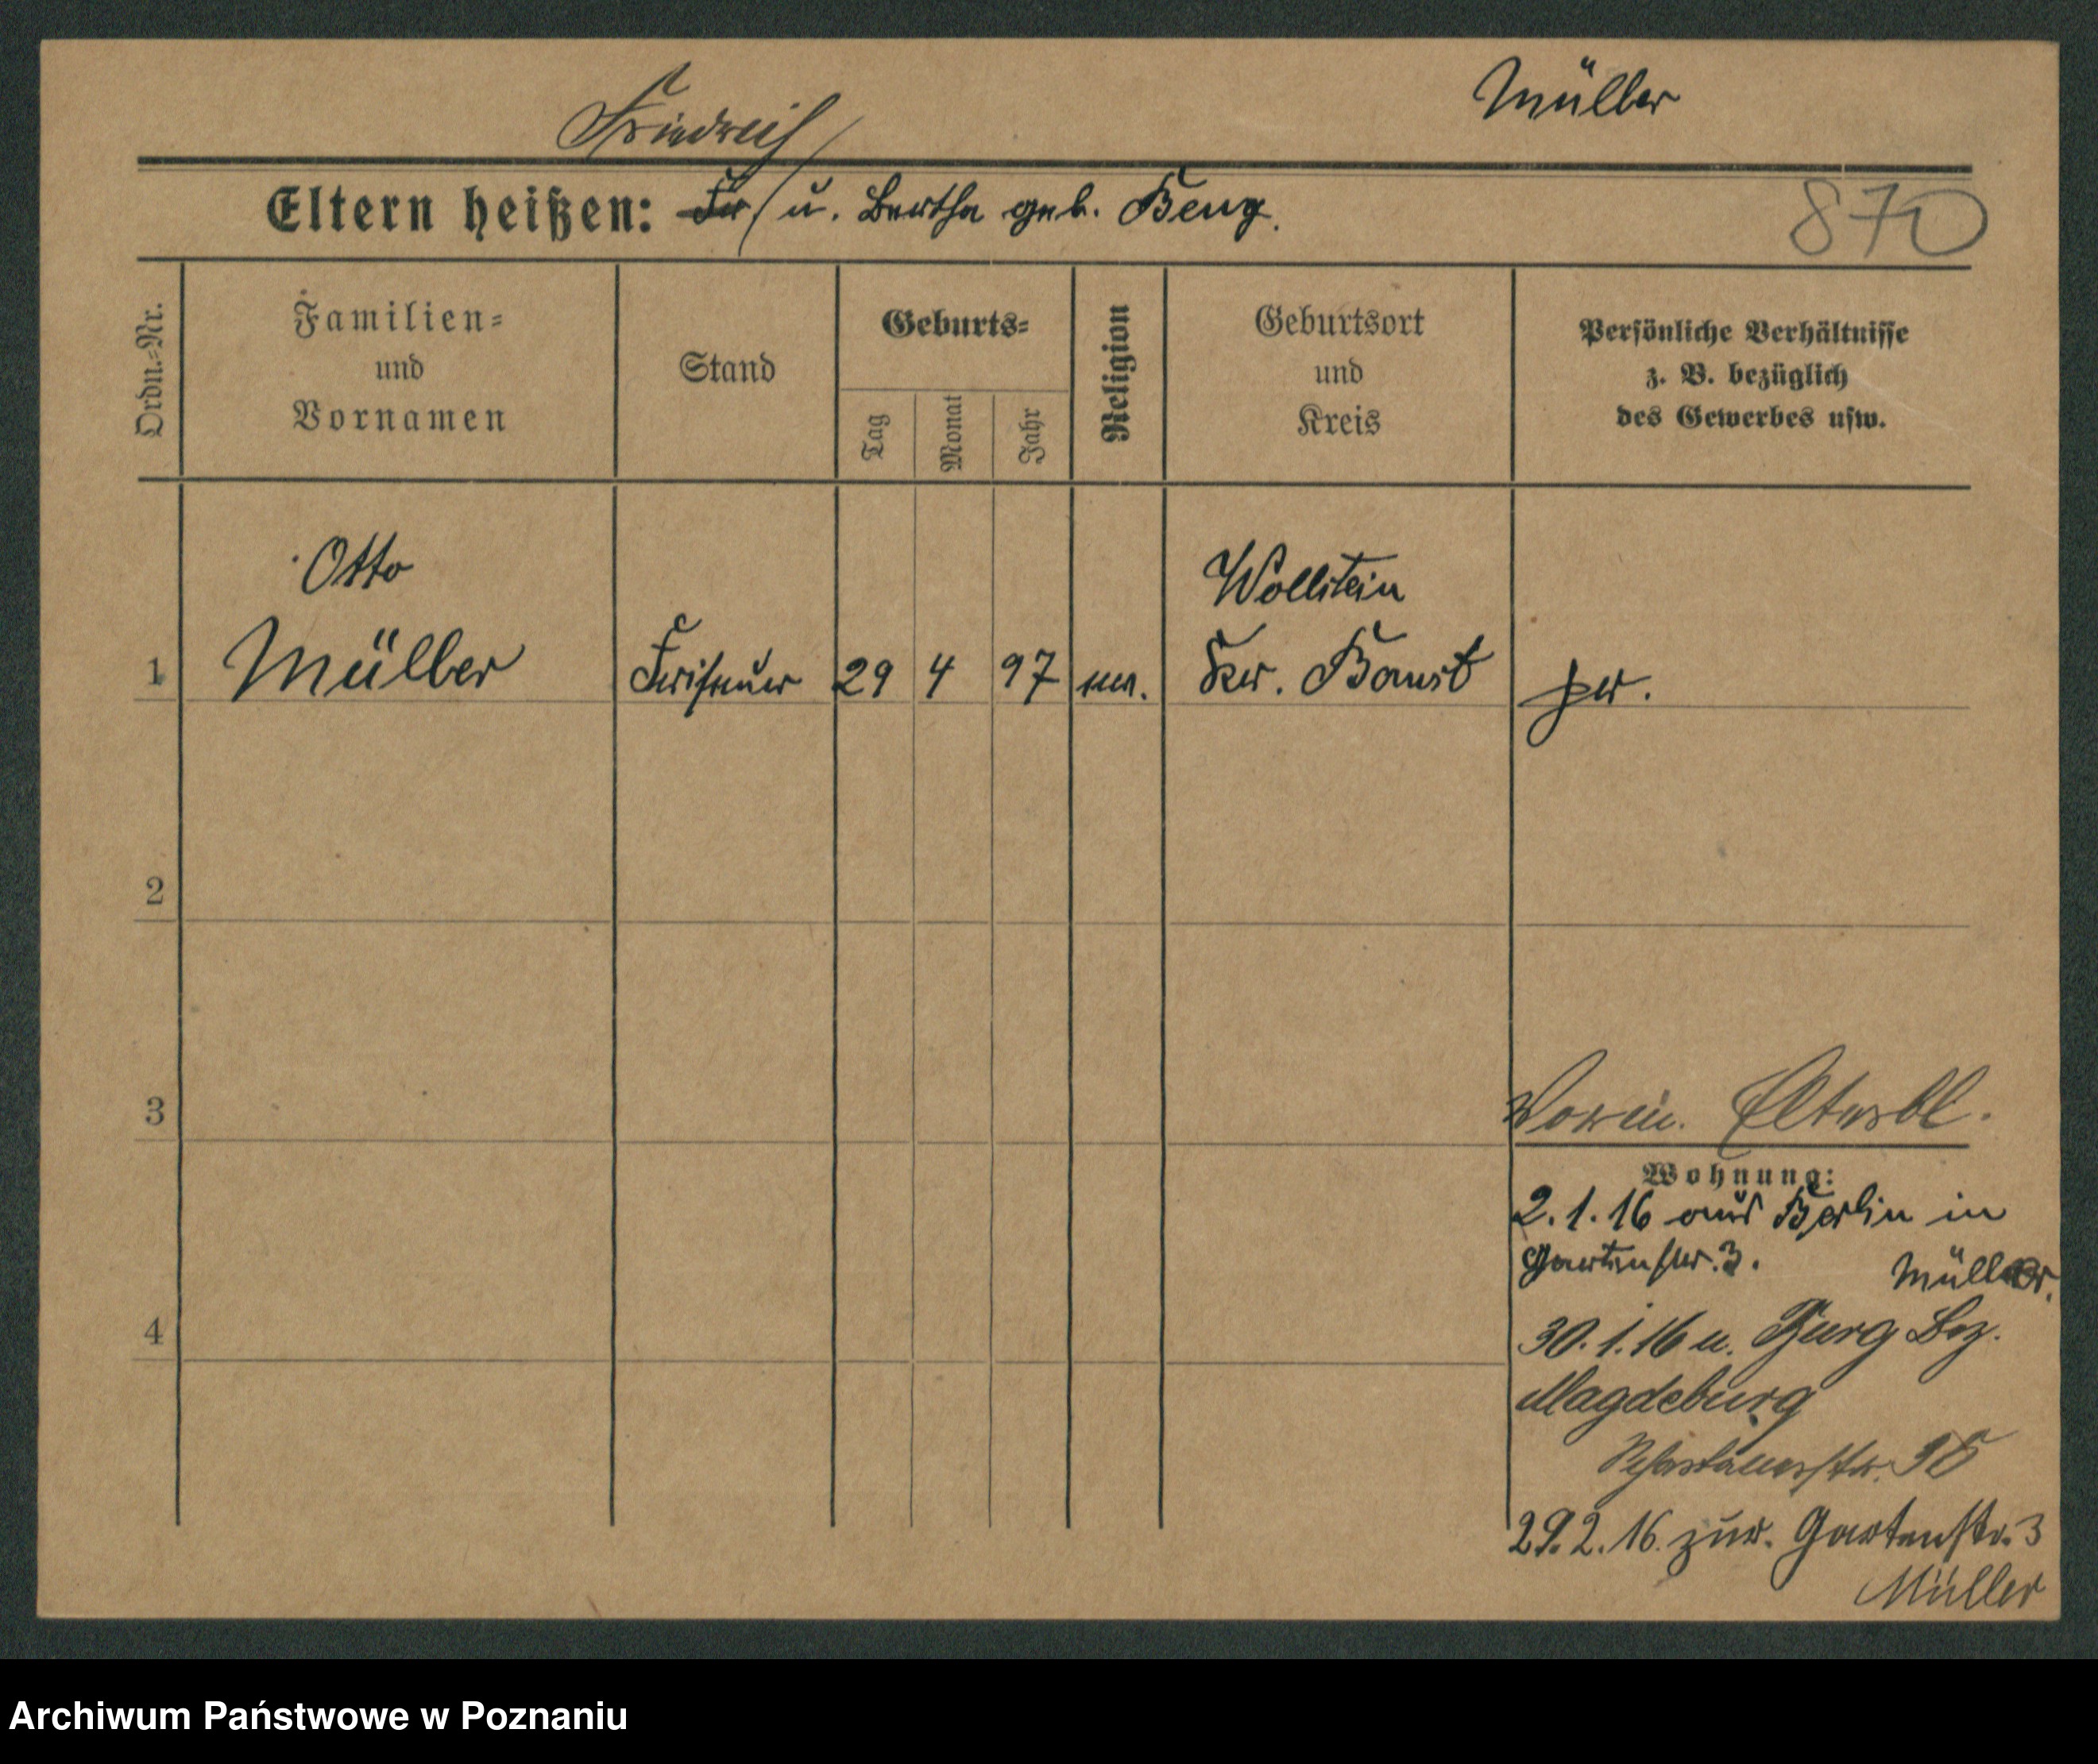 Müller
Friedrich
Eltern heißen: Fr u. Bertha geb. Beng.
870
Ordn.=Nr.
Familien=
und
Vornamen
Stand
Geburts=
Tag
Monat
Jahr
Religion
Geburtsort
und
Kreis
Persönliche Verhältnisse
z. B. bezüglich
des Gewerbes usw.
Otto
Wollstein
1 Müller
Friseur
29
4
97
Kr. Bomst
pr.
2
3
Eltербl.
Wohnung:
2.1.16 aus Berlin in
Gartenstr. 3. Müller.
4
30.1.16 n. Burg Bez.
Magdeburg
29.2.16. zur. Gartenstr. 3
Müller
Archiwum Państwowe w Poznaniu